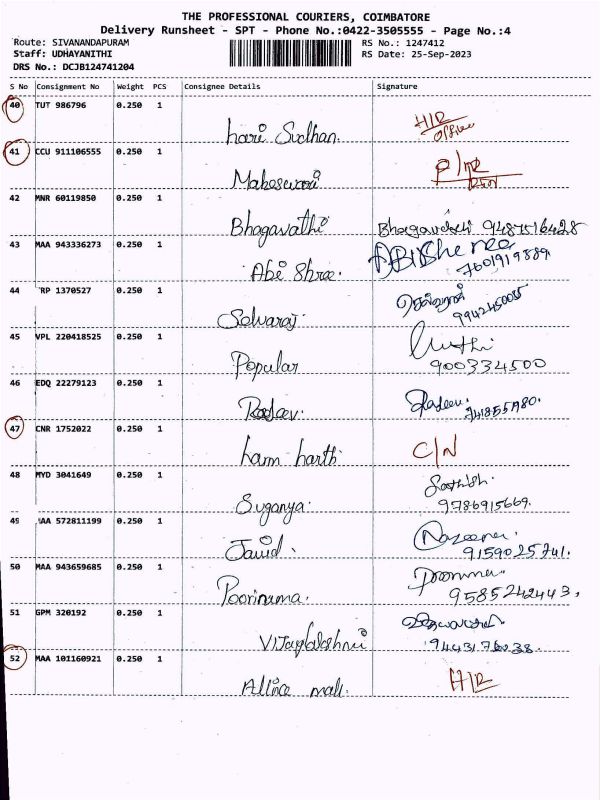 THE PROFESSIONAL COURIERS, COIMBATORE
Delivery Runsheet - SPT - Phone No.:0422-3505555 - Page No.:4
Route: SIVANANDAPURAM RS No.: 1247412
Staff: UDHAYANITHI RS Date: 25-Sep-2023
DRS No.: DCJB124741204
S No Consignment No Weight PCS Consignee Details Signature
40 TUT 986796 0.250 1
Hari Sudhan. H/R Office
41 CCU 911106555 0.250 1
Maheswari
42 MNR 60119850 0.250 1
Bhagavathi 9487516428
43 MAA 943336273 0.250 1
Abi Shree. 7601919889
44 RP 1370527 0.250 1
Selvaraj. செல்வராஜ்
9942450085
45 VPL 220418525 0.250 1
Popular
9003334500
46 EDQ 22279123 0.250 1
47 CNR 1752022 0.250 1
C/N
48 MYD 3041649 0.250 1
Suganya. Sathish.
9786915669.
49 AA 572811199 0.250 1
Javid. Nazeena
9159025741.
50 MAA 943659685 0.250 1
Poornima.
9585242443,
51 GPM 320192 0.250 1
Vijayalakshmi
9443176038.
52 MAA 101160921 0.250 1
mall. H/R